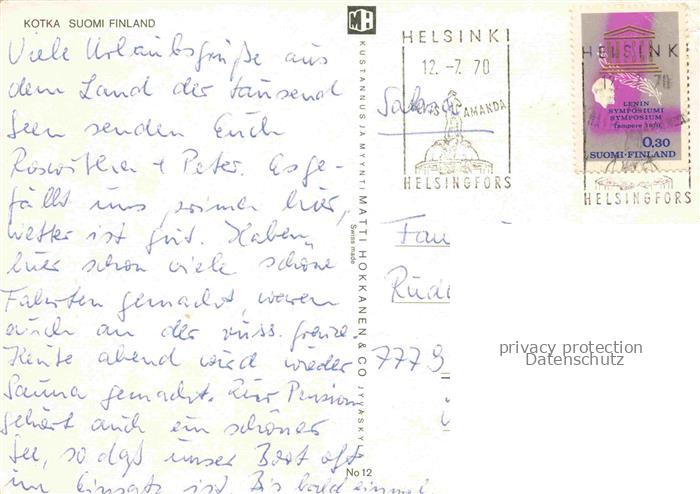 KOTKA SUOMI FINLAND
Viele Urlaubsgrüße aus
dem Land der tausend
Seen senden Euch
Roswitha + Peter. Es ge-
fällt uns prima hier,
wetter ist gut. Haben
hier schon viele schöne
Fahrten gemacht, waren
auch an der russ. Grenze.
Heute abend wird wieder
Sauna gemacht. Zur Pension
gehört auch ein schöner
See, so daß unser Boot oft
im Einsatz ist. Bis bald einmal
MH
KUSTANNUS JA MYYNTI MATTI HOKKANEN & CO JYVÄSKYLÄ
Swiss made
No 12
HELSINKI
12.-7. 70
AMANDA
HELSINGFORS
HELSINKI
70
HELSINGFORS
LENIN
SYMPOSIUMI
SYMPOSIUM
Tampere 1970
0,30
SUOMI-FINLAND
Fam
Rüd
7779
privacy protection
Datenschutz